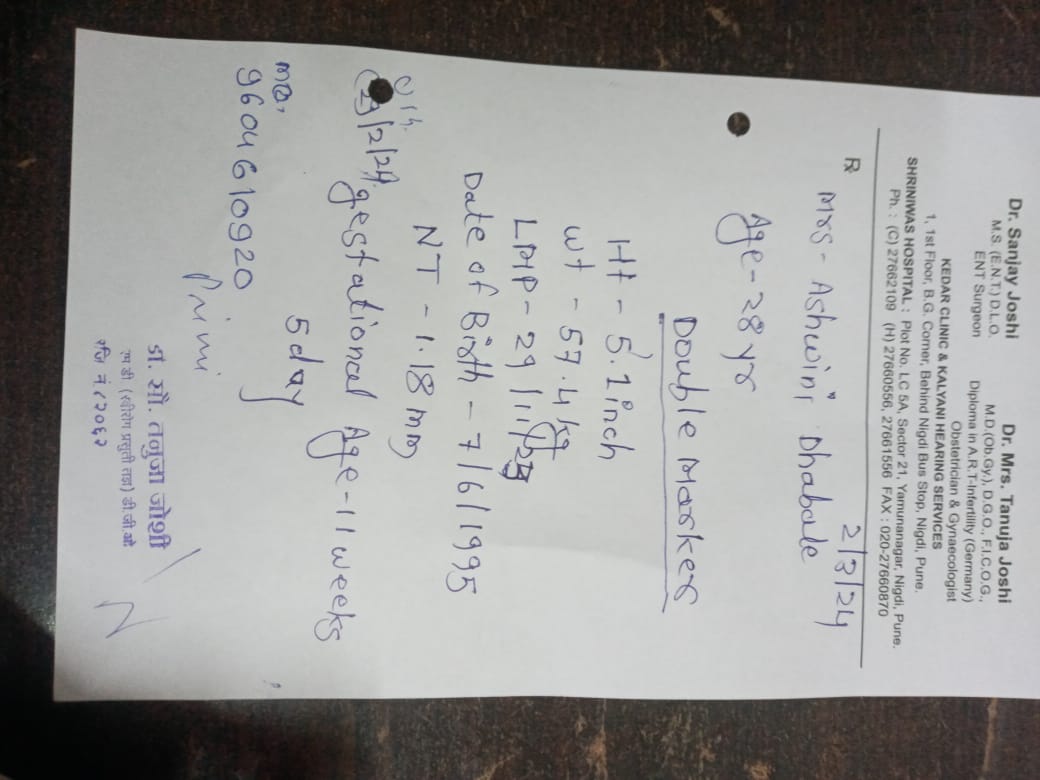 Dr. Sanjay Joshi
M.S. (E.N.T.) D.L.O.
ENT Surgeon
Dr. Mrs. Tanuja Joshi
M.D.(Ob.Gy.), D.G.O., F.I.C.O.G.,
Diploma in A.R.T-Infertility (Germany)
Obstetrician & Gynaecologist
KEDAR CLINIC & KALYANI HEARING SERVICES
1, 1st Floor, B.G. Corner, Behind Nigdi Bus Stop, Nigdi, Pune.
SHRINIWAS HOSPITAL : Plot No. LC 5A, Sector 21, Yamunanagar, Nigdi, Pune.
Ph. : (C) 27662109 (H) 27660556, 27661556 FAX : 020-27660870
2/3/24
Rx
Mrs - Ashwini Dhabale
Age - 28 yr
Double Marker
Ht - 5'.1 inch
wt - 57.4 kg
LMP - 29/11/23
Date of Birth - 7/6/1995
NT - 1.18 mm
/2/24 gestational Age - 11 weeks
5 day
mo.
9604610920
Primi
डॉ. सौ. तनुजा जोशी
एम डी (स्त्रीरोग प्रसुती तज्ञ) डी.जी.ओ.